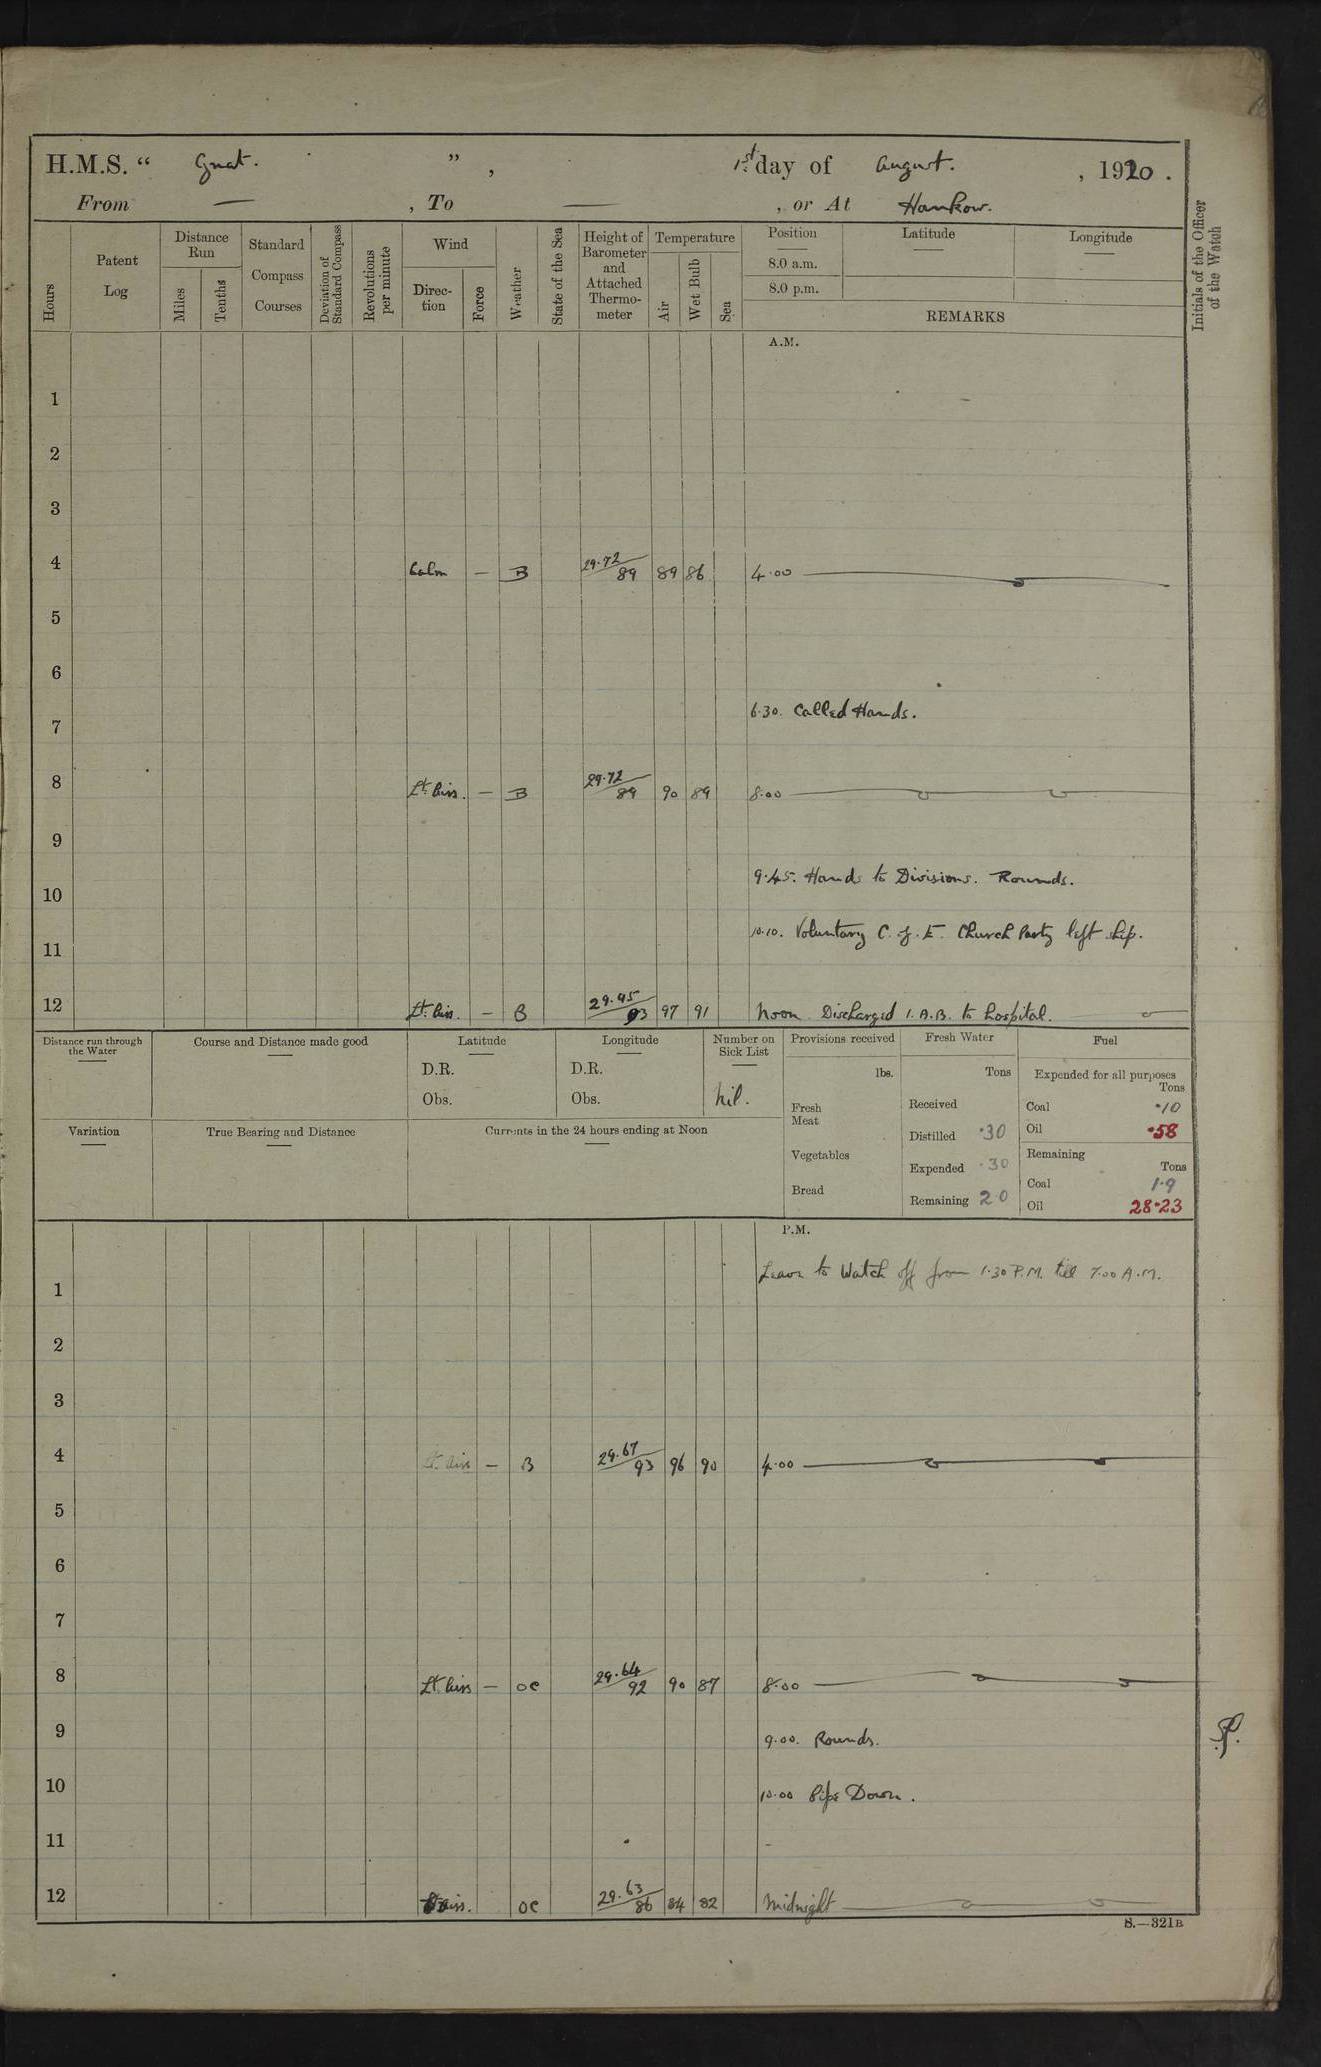 H.M.S. “ Gnat. ”, 1st day of August. , 1920 .
From — , To — , or At Hankow.
Hours
Patent Log
Distance Run
Miles
Tenths
Standard Compass Courses
Deviation of Standard Compass
Revolutions per minute
Wind
Direc-tion
Force
Weather
State of the Sea
Height of Barometer and Attached Thermo-meter
Temperature
Air
Wet Bulb
Sea
Position
8.0 a.m.
8.0 p.m.
Latitude
Longitude
REMARKS
Initials of the Officer of the Watch
A.M.
1
2
3
4 Calm — B 29.72/89 89 86 4.00
5
6
6.30. Called Hands.
7
8 Lt. Airs. — B 29.72/89 90 89 8.00
9
9.45. Hands to Divisions. Rounds.
10
10.10. Voluntary C. of E. Church Party left ship.
11
12 Lt. Airs. — B 29.95/93 97 91 Noon Discharged 1. A.B. to hospital.
Distance run through the Water
Course and Distance made good
Latitude
D.R.
Obs.
Longitude
D.R.
Obs.
Number on Sick List
Nil.
Provisions received
lbs.
Fresh Meat
Vegetables
Bread
Fresh Water
Tons
Received
Distilled .30
Expended .30
Remaining 20
Fuel
Expended for all purposes
Tons
Coal .10
Oil .58
Remaining
Tons
Coal 1.9
Oil 28.23
Variation
True Bearing and Distance
Currents in the 24 hours ending at Noon
P.M.
Leave to Watch off from 1.30 P.M. till 7.00 A.M.
1
2
3
4 Lt. Airs — B 29.67/93 96 90 4.00
5
6
7
8 Lt. Airs — oc 29.64/92 90 87 8.00
9 9.00. Rounds.
10 10.00 Pipe Down.
11
12 Lt Airs. oc 29.63/86 84 82 Midnight
S.—321B